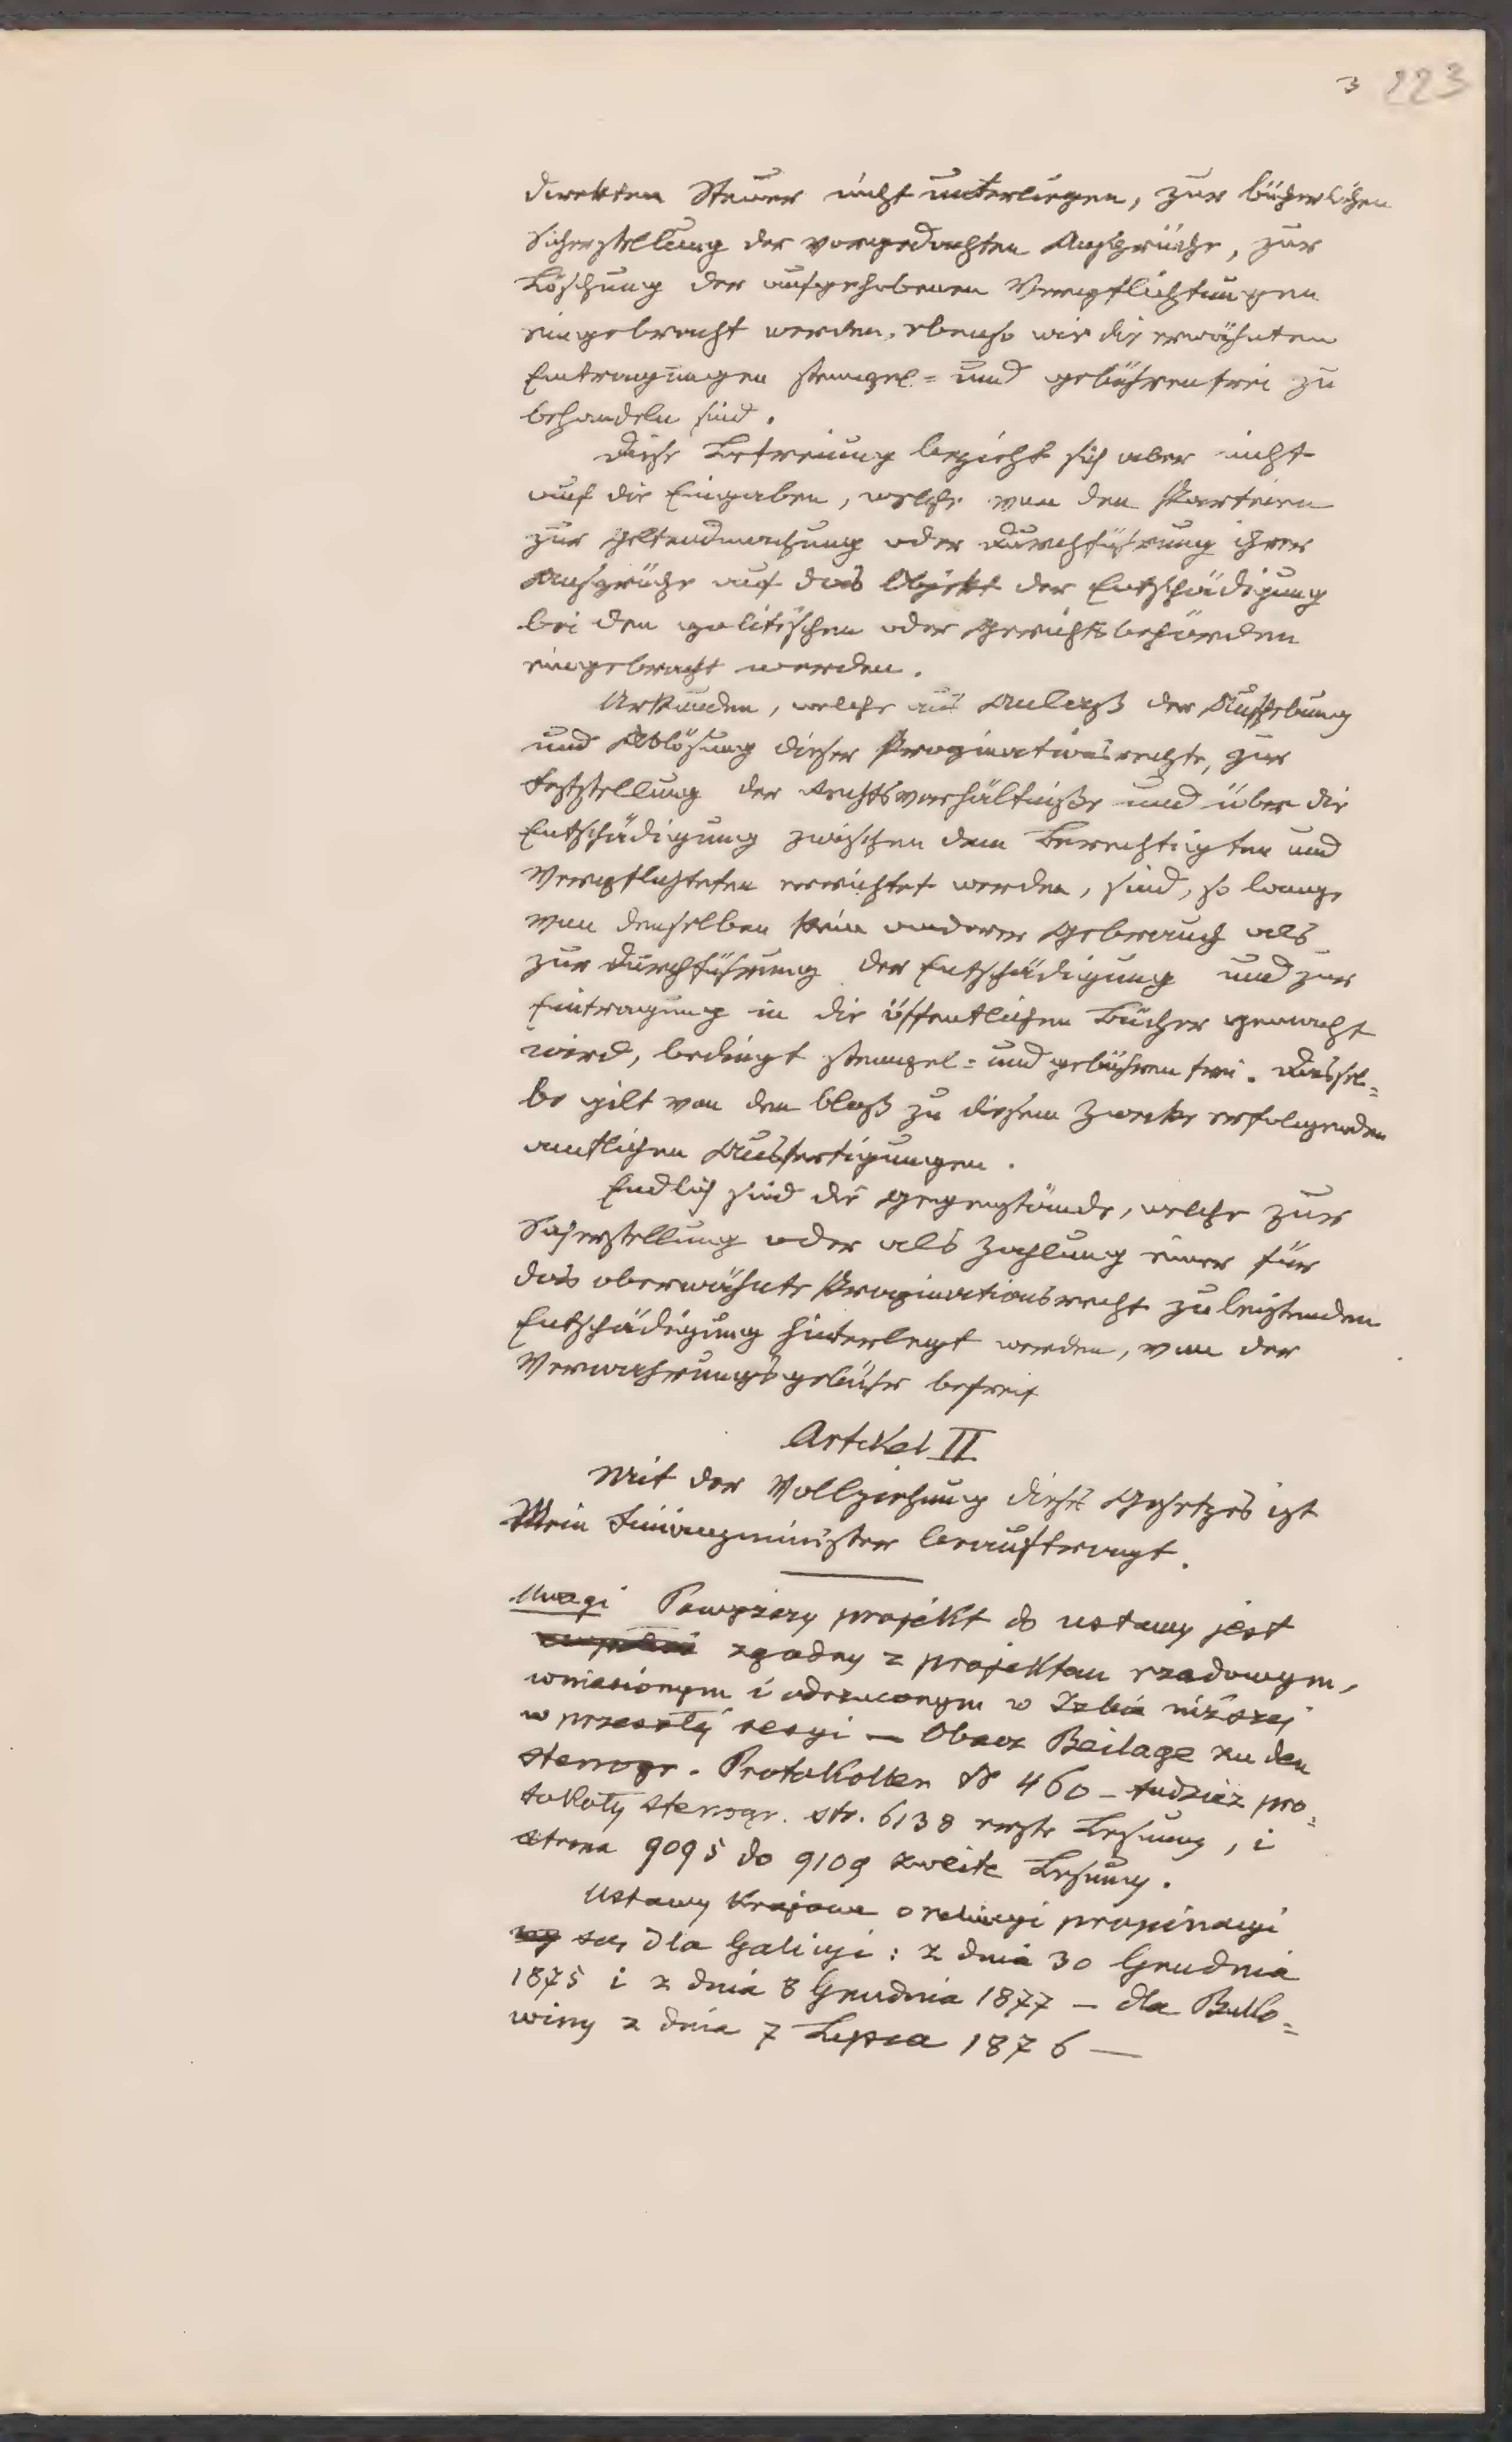 3 223
direkten Steuer nicht unterliegen, zur bücherlichen
Sicherstellung der vorgedachten Ansprüche, zur
Löschung der aufgehobenen Verpflichtungen
eingebracht werden, ebenso wie die erwähnten
Eintragungen stempel= und gebührenfrei zu
behandeln sind.
Diese Befreiung bezieht sich aber nicht
auf die Eingaben, welche von den Parteien
zur Geltendmachung oder Durchführung ihrer
Ansprüche auf das Objekt der Entschädigung
bei den politischen oder Gerichtsbehörden
eingebracht werden.
Urkunden, welche aus Anlaß der Aufhebung
und Ablösung dieser Propinationsrechte, zur
Feststellung der Rechtsverhältniße und über die
Entschädigung zwischen dem Berechtigten und
Verpflichteten errichtet werden, sind, so lange
von denselben kein anderer Gebrauch als
zur Durchführung der Entschädigung und zur
Eintragung in die öffentlichen Bücher gemacht
wird, bedingt stempel= und gebührenfrei. Dassel=
be gilt von den bloß zu diesem Zwecke erfolgenden
amtlichen Ausfertigungen.
Endlich sind die Gegenstände, welche zur
Sicherstellung oder als Zahlung einer für
das oberwähnte Propinationsrecht zu leistenden
Entschädigung hinterlegt werden, von der
Verwahrungsgebühr befreit
Artikel II
Mit der Vollziehung dieses Gesetzes ist
Mein Finanzminister beauftragt.
Uwagi Powyższy projekt do ustawy jest
zgodny z projektem rządowym,
wniesionym i odrzuconym w Izbie niższej
w przeszłéj sesyi — Obacz Beilage zu den
stenogr. Protokollen № 460 – tudzież pro=
tokoły stenogr. str. 6138 erste Lesung, i
strona 9095 do 9109 zweite Lesung.
Ustawy krajowe o relucyi propinacyi
są dla Galicyi: z dnia 30 Grudnia
1875 i z dnia 8 Grudnia 1877 – dla Buko=
winy z dnia 7 Lipca 1876 —